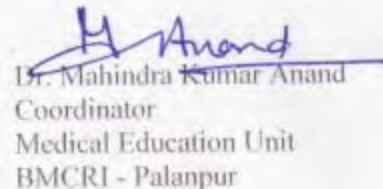 M Anand
Dr. Mahindra Kumar Anand
Coordinator
Medical Education Unit
BMCRI - Palanpur